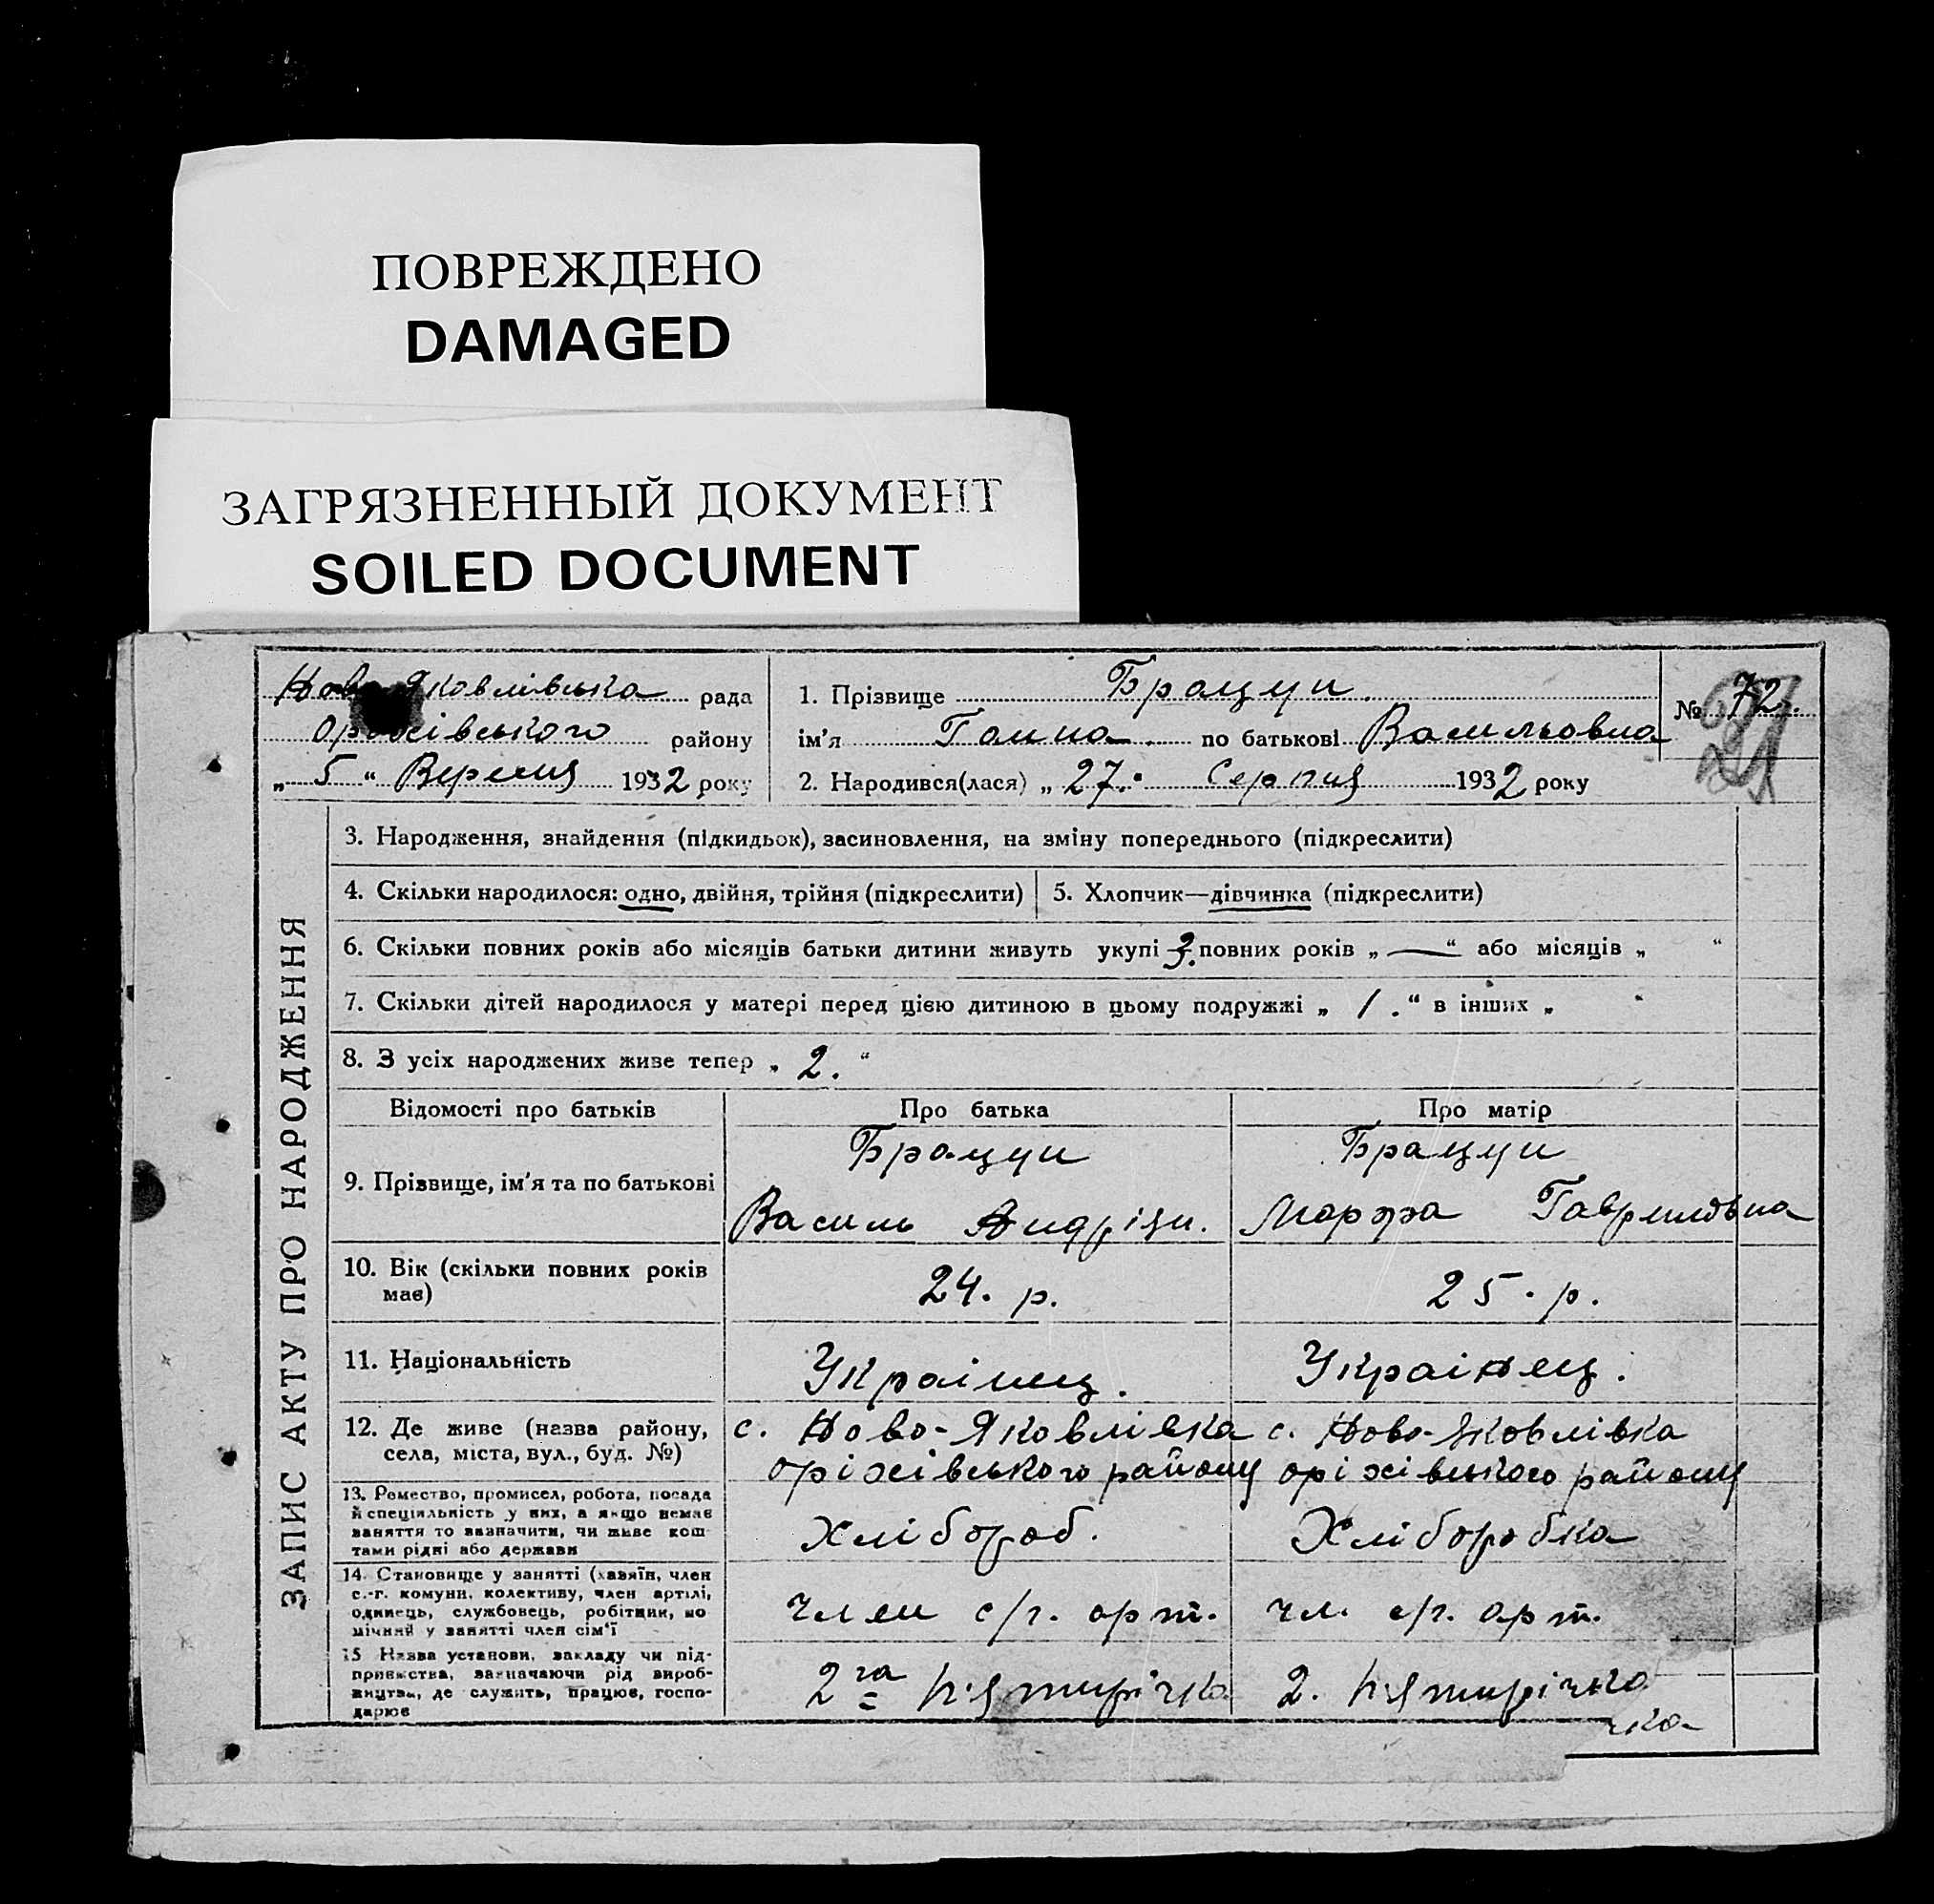 ПОВРЕЖДЕНО
DAMAGED
ЗАГРЯЗНЕННЫЙ ДОКУМЕНТ
SOILED DOCUMENT
Ново-Яковлівська рада
Оріхівського району
„ 5 “ Вересня 1932 року
1. Прізвище Брацун
ім'я Ганна по батькові Васильовна
2. Народився(лася) „ 27. “ Серпня 1932 року
№ 72.
21
ЗАПИС АКТУ ПРО НАРОДЖЕННЯ
3. Народження, знайдення (підкидьок), засиновлення, на зміну попереднього (підкреслити)
4. Скільки народилося: одно, двійня, трійня (підкреслити)
5. Хлопчик—дівчинка (підкреслити)
6. Скільки повних років або місяців батьки дитини живуть укупі 3. повних років „ — “ або місяців „ “
7. Скільки дітей народилося у матері перед цією дитиною в цьому подружжі „ 1. “ в інших „ “
8. З усіх народжених живе тепер „ 2. “
Відомості про батьків
Про батька
Про матір
9. Прізвище, ім'я та по батькові
Брацун
Василь Андріян.
Брацун
Марфа Гавриловна
10. Вік (скільки повних років
має)
24. р.
25. р.
11. Національність
Украінец.
Украінец.
12. Де живе (назва району,
села, міста, вул., буд. №)
с. Ново-Яковлівка
оріхівського району
с. Ново-Яковлівка
оріхівського району
13. Ремество, промисел, робота, посада
й спеціяльність у них, а якщо немає
заняття то вазначити, чи живе кош-
тами рідні або держави
Хлібороб.
Хліборобка
14. Становище у занятті (хазяїн, член
с.-г. комуни, колективу, член артілі,
одинець, службовець, робітник, по
мічний у занятті член сім'ї
член с/г. арт.
чл. с/г. арт.
15 Назва установи, закладу чи під-
приємства, зазначаючи рід вироб-
ництва, де служить, працює, госпо-
дарює
2га пятирічка
2. пятирічка
чка